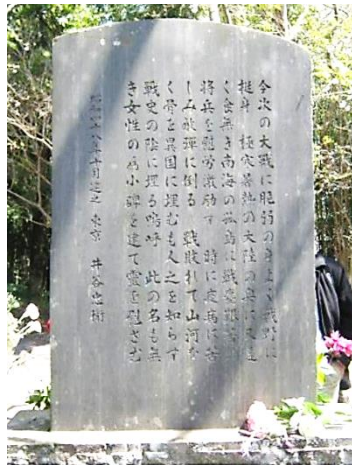 今次の大戦に脆弱の身よく戦野に
挺身 極寒暑熱の大陸の奥に又遠
く食無き南海の孤島に戦
将兵を慰労激励す 時に疫病に苦
しみ敵弾に倒る 戦敗れて山河な
く骨を異国に埋むも人之を知らず
戦史の陰に埋る嗚呼 此の名も無
き女性の為小碑を建て霊を慰さむ
昭和四十八年十月建之 東京 井谷忠